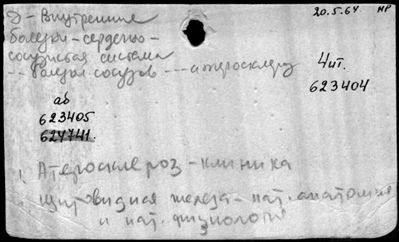 20.5.64. НР
Э - Внутренние
болезни - сердечно -
сосудистая система
-- болезни сосудов --- атеросклероз
4ит.
623404
аб
623405
624741.
1. Атеросклероз - клиника
1. Щитовидная железа - пат. анатомия
и пат. физиология